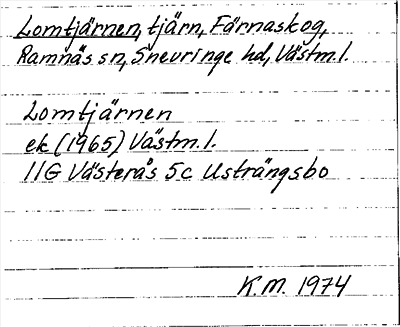 Lomtjärnen, tjärn, Färnaskog,
Ramnäs sn, Snevringe hd, Västm.l.
Lomtjärnen
ek (1965) Västm.l.
11G Västerås 5c Usträngsbo
K.M. 1974